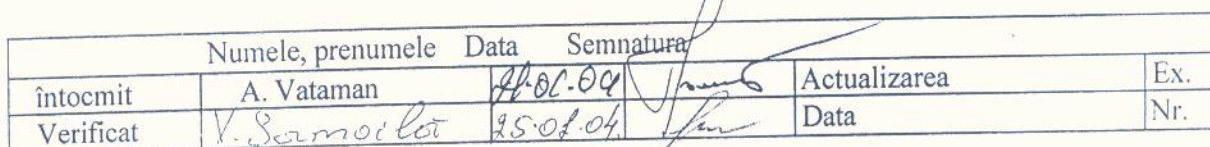 Numele, prenumele Data Semnatura
întocmit A. Vataman Actualizarea Ex.
Verificat V. Samoilă 25.01.04 Data Nr.